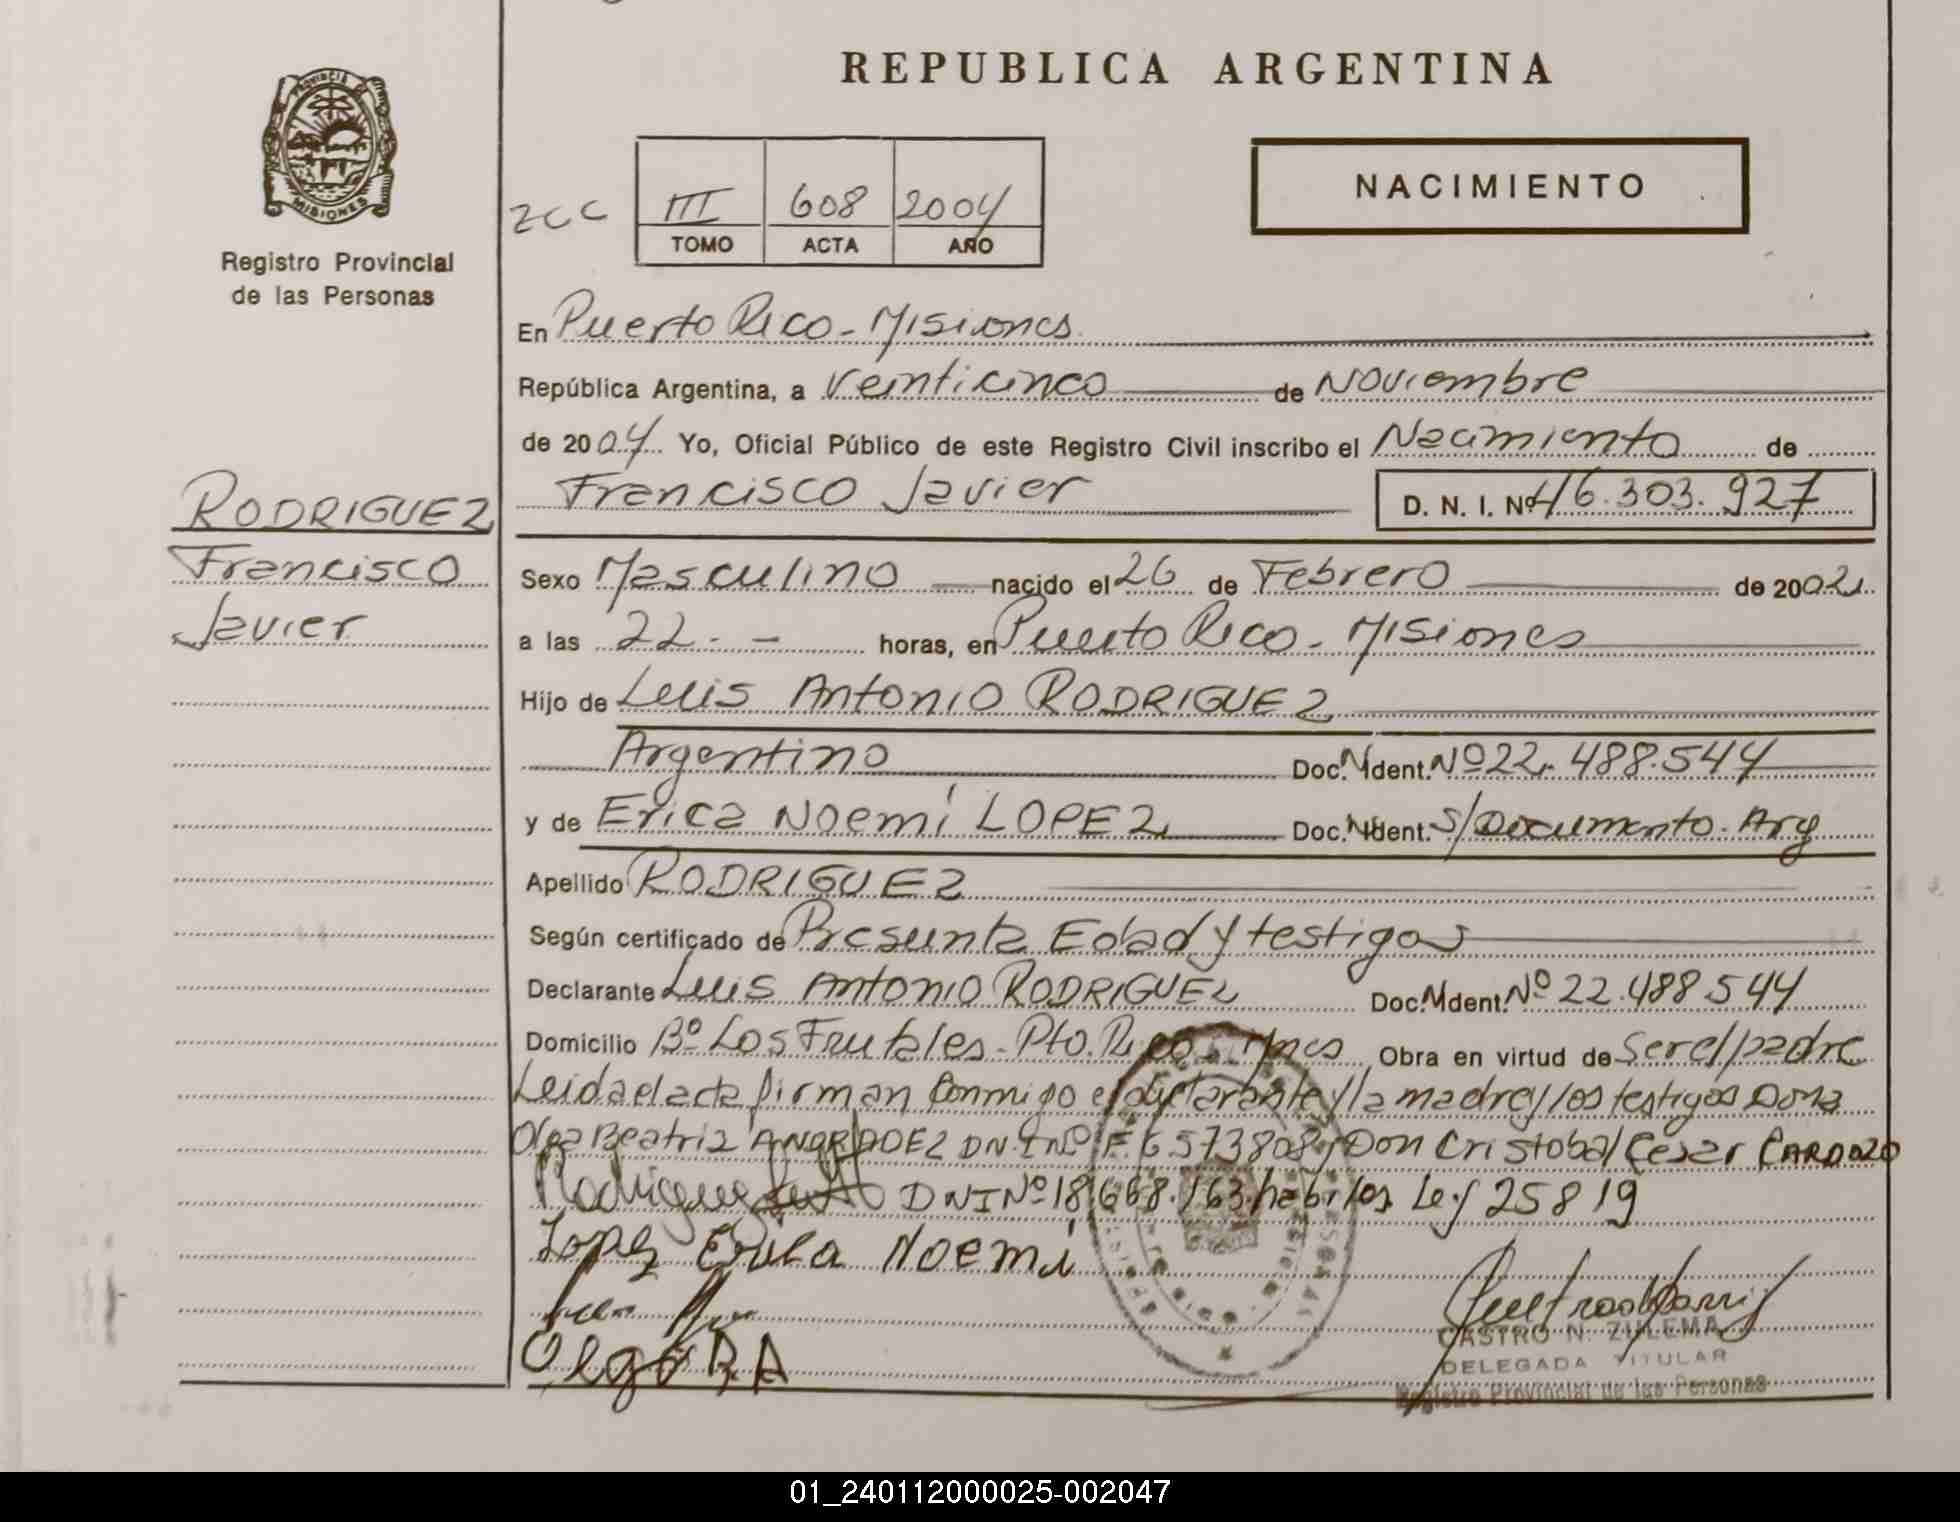 REPUBLICA ARGENTINA
PROVINCIA DE
MISIONES
Registro Provincial
de las Personas
ZCC
III 608 2004
TOMO ACTA AÑO
NACIMIENTO
En Puerto Rico - Misiones
República Argentina, a veinticinco de Noviembre
de 2004 Yo, Oficial Público de este Registro Civil inscribo el Nacimiento de
Francisco Javier D. N. I. Nº 46.303.927
RODRIGUEZ
Francisco
Javier
Sexo Masculino nacido el 26 de Febrero de 2002
a las 22. - horas, en Puerto Rico - Misiones
Hijo de Luis Antonio RODRIGUEZ
Argentino Doc. N Ident. Nº 22.488.544
y de Erica Noemí LOPEZ Doc. N Ident. S/Documento. Arg
Apellido RODRIGUEZ
Según certificado de Presunta Edad y testigos
Declarante Luis Antonio RODRIGUEZ Doc. N Ident. Nº 22.488.544
Domicilio Bº Los Frutales - Pto. Rico - Mnes Obra en virtud de Ser el padre
Leida el acta firman conmigo el declarante y la madre y los testigos Doña
Olga Beatriz D.N.I Nº F. 6573808 y Don Cristobal Cesar CARDOZO
Rodriguez DNI Nº 18.668.163 habiles Ley 25819
Lopez Erica Noemi
Olga B A
CASTRO N. ZULEMA
DELEGADA TITULAR
Registro Provincial de las Personas
01_240112000025-002047